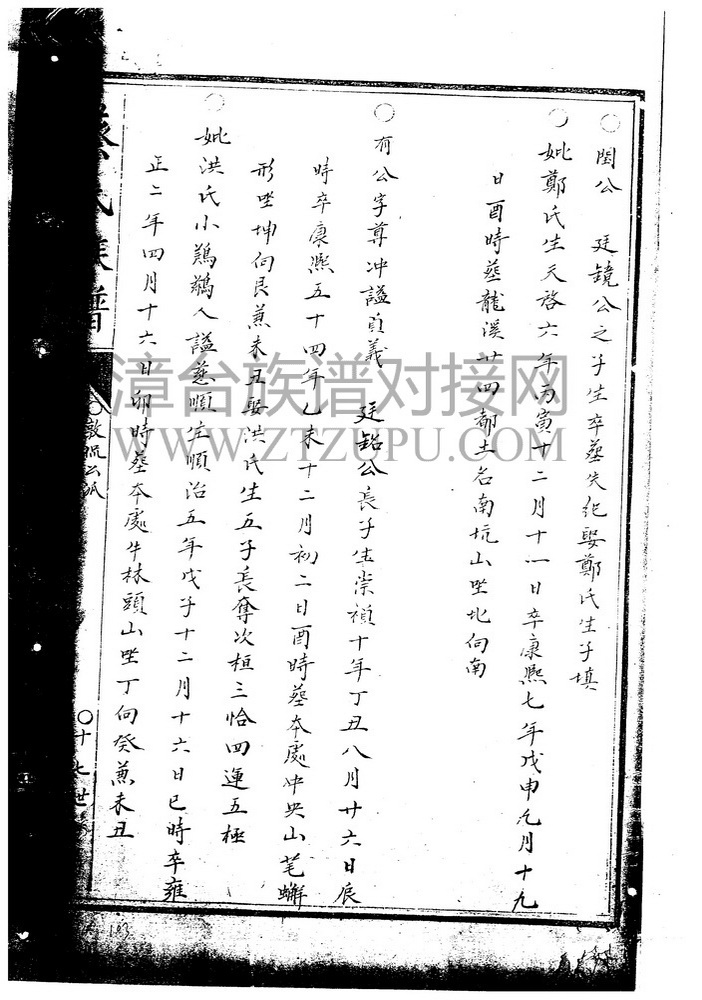 ○閏公 廷鏡公之子生卒葬失紀娶鄭氏生子填
○妣鄭氏生天啓六年丙寅十二月十一日卒康熙七年戊申九月十九
日酉時葬龍溪廿四都土名南坑山坐北向南
○有公字尊冲謚貞義 廷鋁公長子生崇禎十年丁丑八月廿六日辰
時卒康熙五十四年乙未十二月初二日酉時葬本處中央山毛蠏
形坐坤向艮兼未丑娶洪氏生五子長奪次桓三恰四運五極
○妣洪氏小鷄鵝人謚慈順生順治五年戊子十二月十六日巳時卒雍
正二年四月十六日卯時葬本處牛林頭山坐丁向癸兼未丑
氏族譜
○敦
○十七世
103
漳台族谱对接网
WWW.ZTZUPU.COM